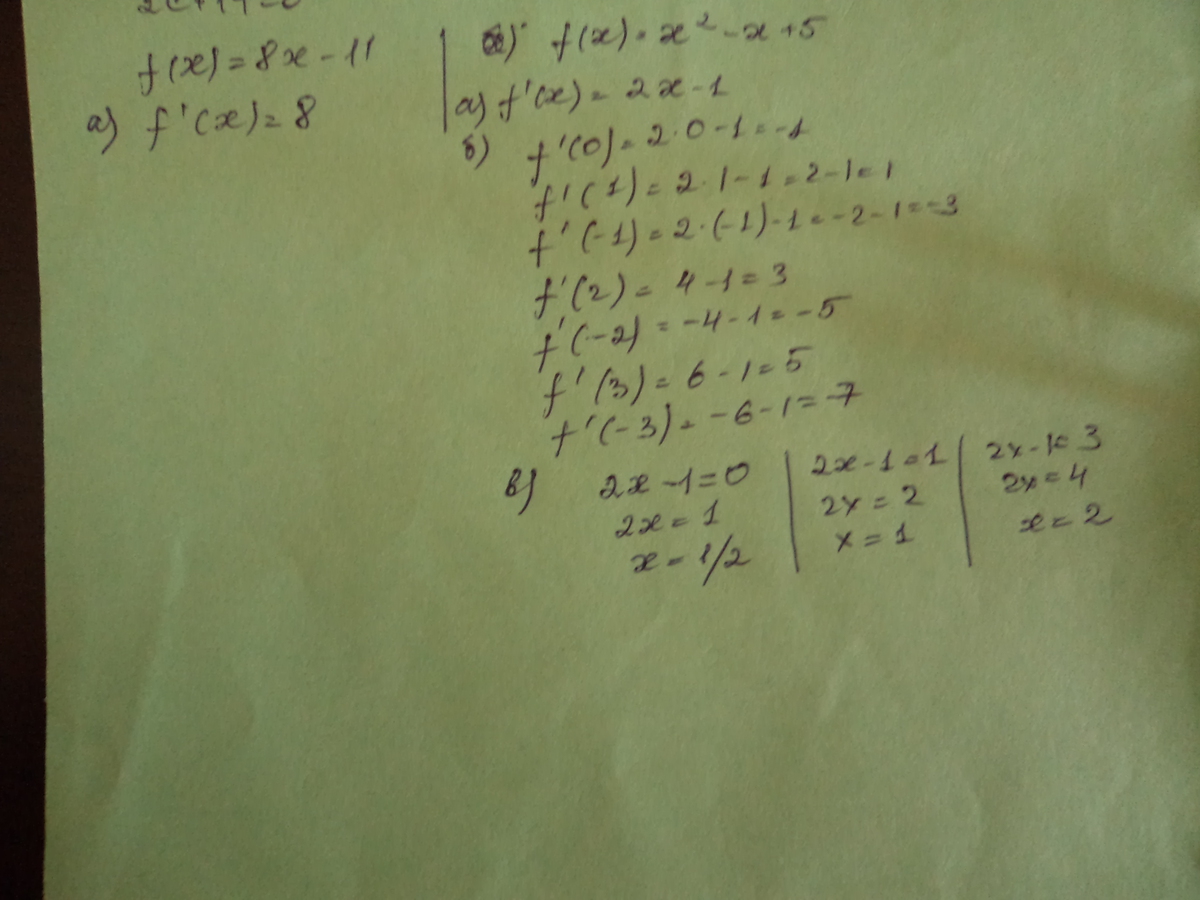 f(x) = 8x - 11
а) f'(x) = 8
f(x) = x² - x + 5
а) f'(x) = 2x - 1
б) f'(0) = 2·0 - 1 = -1
f'(1) = 2·1 - 1 = 2 - 1 = 1
f'(-1) = 2·(-1) - 1 = -2 - 1 = -3
f'(2) = 4 - 1 = 3
f'(-2) = -4 - 1 = -5
f'(3) = 6 - 1 = 5
f'(-3) = -6 - 1 = -7
в) 2x - 1 = 0
2x = 1
x = 1/2
2x - 1 = 1
2x = 2
x = 1
2x - 1 = 3
2x = 4
x = 2